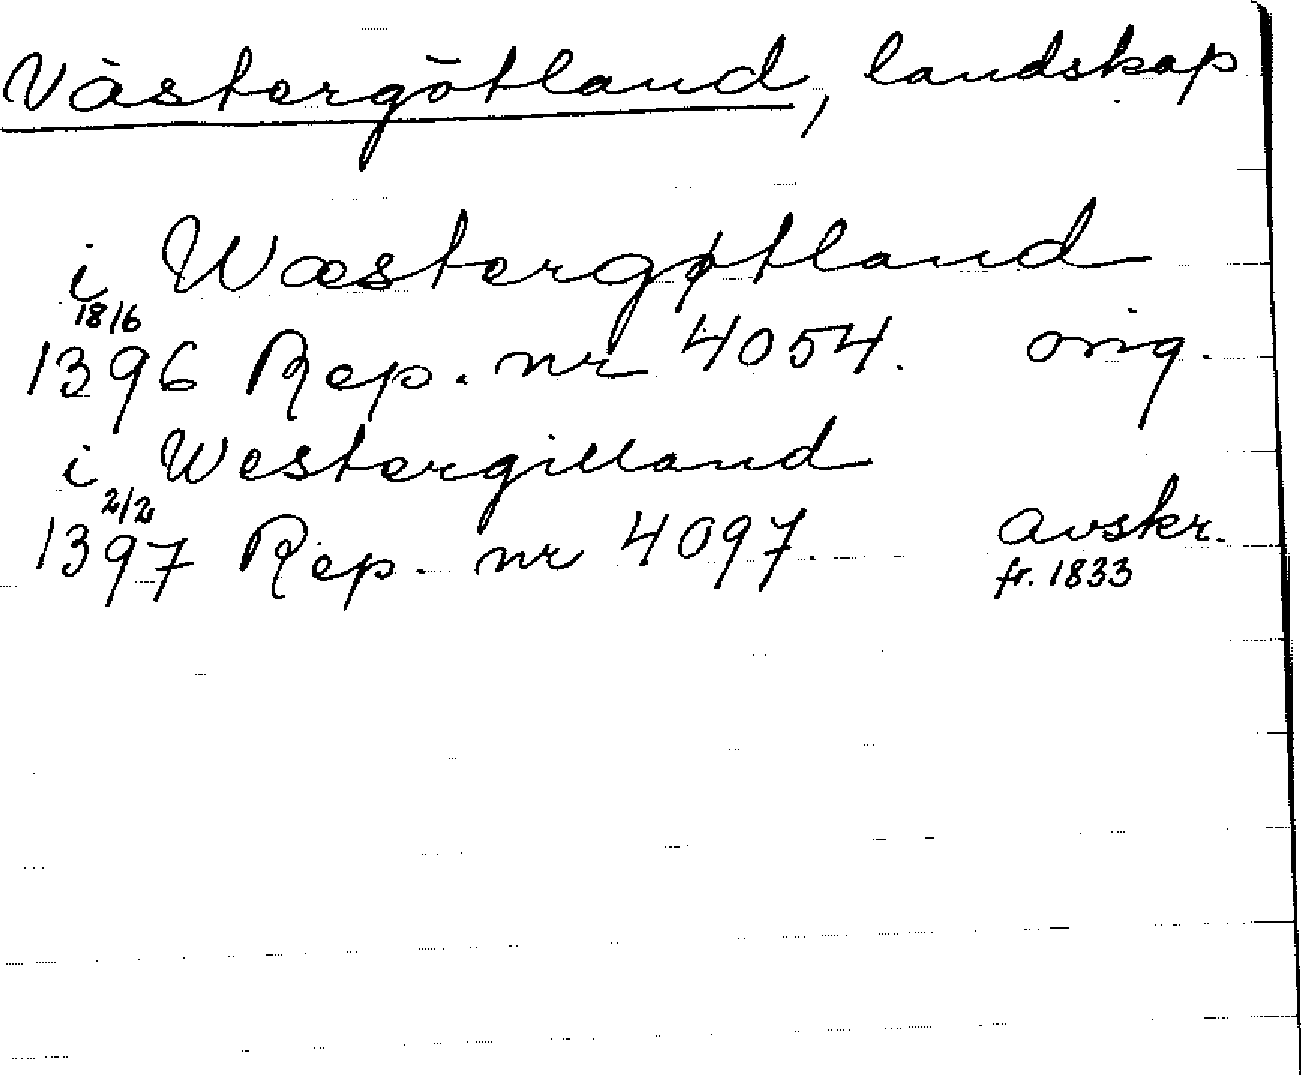 Västergötland, landskap
i Wæstergøtland
18/6
1396 Rep. nr 4054. orig.
i Westergilland
2/2
1397 Rep. nr 4097. avskr.
fr. 1833